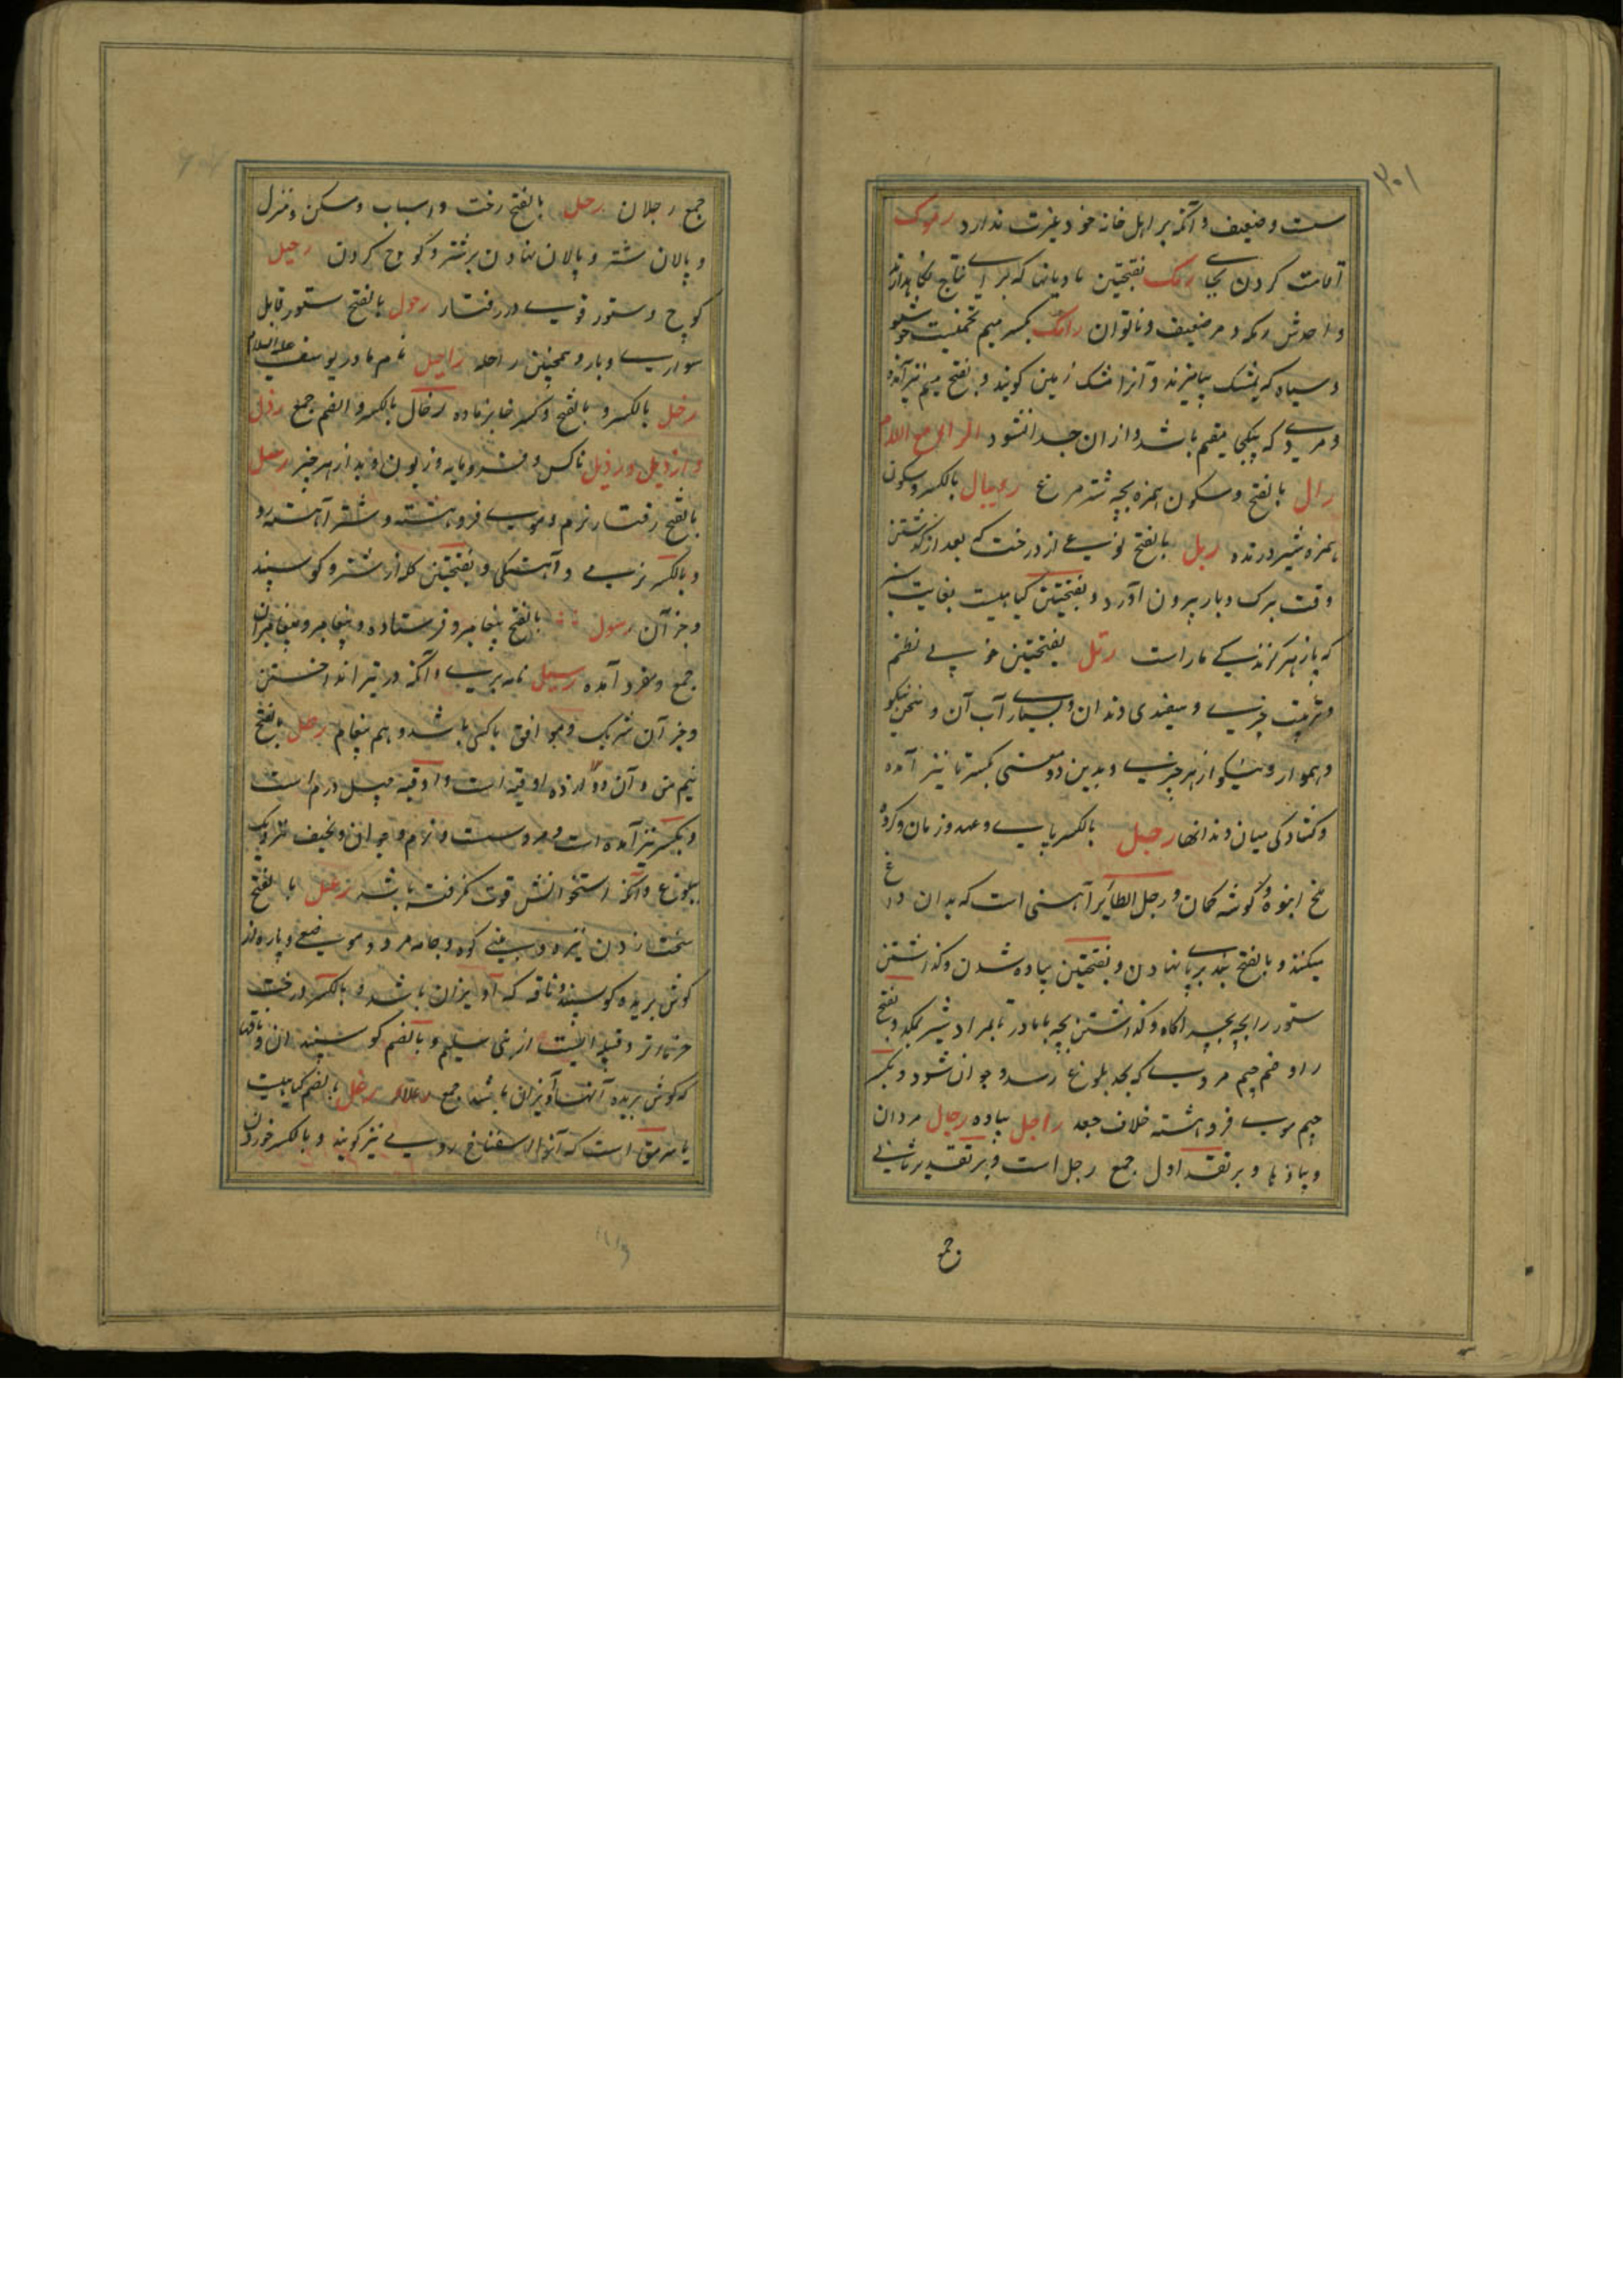 ۳۰۱
سست و ضعیف و آنکه بر اهل خانه خود غیرت ندارد رموک
اقامت کردن بجای رمک بفتحتین مادیانها که برای نتاج نگاهدارند
واحدش رمکه و مرد ضعیف و ناتوان رامک بکسر میم چیزیست خوشبو
و سیاه که بمشک بیامیزند و آنرا مشک زمین گویند و بفتح میم نیز آمده
و مردی که بیکجا مقیم باشد و ازان جدا نشود الرای مع اللام
رال بالفتح و سکون همزه بچه شترمرغ ریبال بالکسر و سکون
همزه شیر درنده ربل بالفتح نوعی از درخت که بعد از گذشتن
وقت برک و بار بیرون آورد و بفتحتین گیاهیست بغایت سبز
که پازهر گزندگی مار است رتل بفتحتین خوبی نظم
و تربیت چیزی و سفیدی دندان و بسیاری آب آن و سخن نیکو
و هموار و نیکو از هر چیزی و بدین دو معنی بکسر تا نیز آمده
و کشادگی میان دندانها رجل بالکسر پای و عهد و زمان و گروه
ملخ انبوه و گوشه کمان و رجل الطائر آهنی است که بدان داغ
میکنند و بالفتح بند برپا نهادن و بفتحتین پیاده شدن و گذاشتن
ستور را بچه بچراگاه و گذاشتن بچه با مادر تا بمراد شیر بمکد و بفتح
را و ضم جیم مردی که بحد بلوغ رسد و جوان شود و بکسر
جیم موی فروهشته خلاف جعد راجل پیاده رجال مردان
و پیادها و بر تقدیر اول جمع رجل است و بر تقدیر ثانی
جمع
جمع رجلان رحل بالفتح رخت و اسباب و مسکن و منزل
و پالان شتر و پالان نهادن بر شتر و کوچ کردن رحیل
کوچ و ستور قوی در رفتار رحول بالفتح ستور قابل
سواری و بار و همچنین راحله راحیل نام مادر یوسف علیه السلام
رخل بالکسر و بالفتح و کسر خا بره ماده رخال بالکسر و الضم جمع رذل
و ارذیل و رذیل ناکس و فرومایه و زبون و بد از هر چیز رسل
بالفتح رفتار نرم و موی فروهشته و شتر آهسته رو
و بالکسر نرمی و آهستگی و بفتحتین گله از شتر و گوسپند
و جز آن رسول بالفتح پیغامبر و فرستاده و پیغامبر و پیغامبران
جمع و مفرد آمده رسیل نامه بری و آنکه در تیر انداختن
و جز آن شریک و موافق با کسی باشد و هم پیغام رطل بالفتح
نیم من و آن دوازده اوقیه است و اوقیه چهل درم است
و بکسر نیز آمده است و مرد سست و نرم و جوان و نحیف نزدیک
ببلوغ و آنکه استخوانش قوت نگرفته باشد رعل بالفتح
سخت زدن نیزه و بینی کوه و جامه مرد و موضعی و پاره از
گوش بریده گوسپند و ناقه که آویزان باشد و بالکسر درخت
خرما نر و قبیله ایست از بنی سلیم و بالضم گوسپندان و ناقها
که گوش بریده آنها آویزان باشد جمع رعلاء رغل بالضم گیاهیست
یا سرمق است که آنرا اسفناخ رومی نیز گویند و بالکسر خوردن